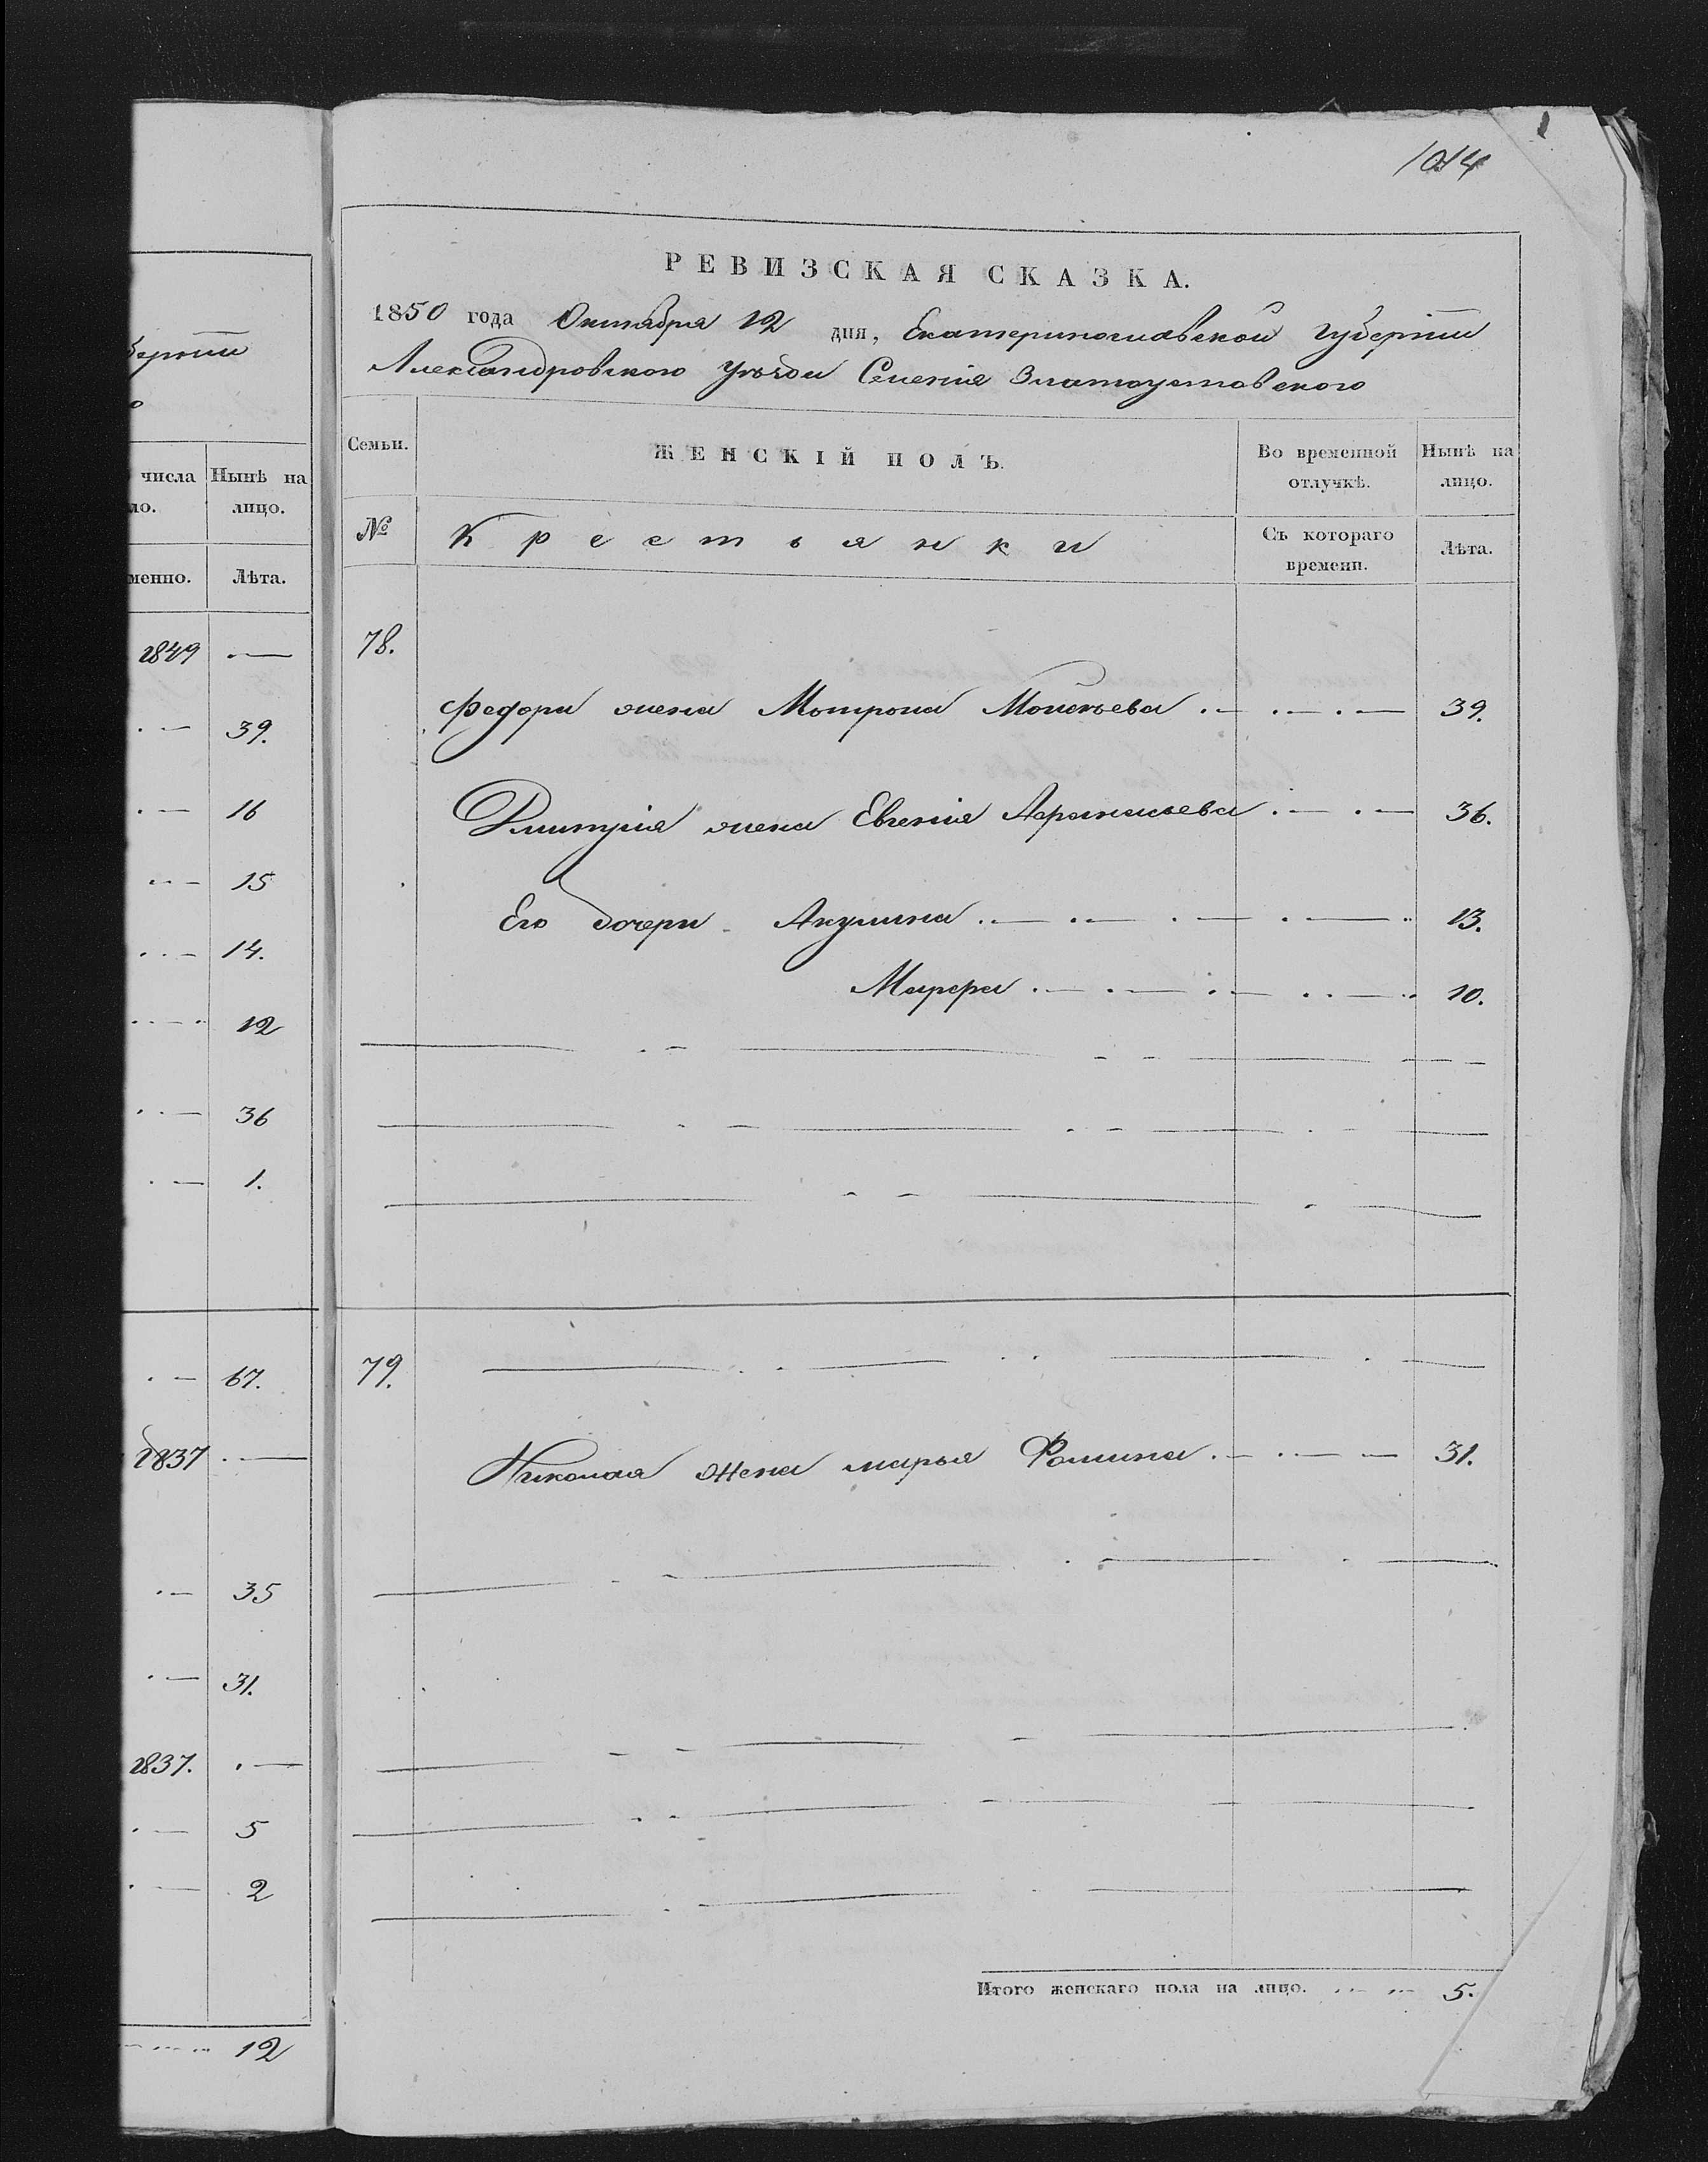 берніи
о
числа
ло.
Нынѣ на
лицо.
менно.
Лѣта.
1849 —
39.
16
15
14.
12
36
1.
67.
1837 —
35
31.
1837. —
5
2
12
1014
РЕВИЗСКАЯ СКАЗКА.
1850 года Октября 12 дня, Екатеринославской губерніи
Александровского уѣзда Селенія Златоустовского
Семьи.
ЖЕНСКІЙ ПОЛЪ.
Во временной
отлучкѣ.
Нынѣ на
лицо.
№
Крестьянки
Съ котораго
времени.
Лѣта.
78.
Федора жена Мотрона Моисѣева 39.
Дмитрія жена Евгенія Афанасьева 36.
Его дочери Акулина 13.
Марфа 10.
79.
Николая жена марья Фомина 31.
Итого женскаго пола на лицо. 5.